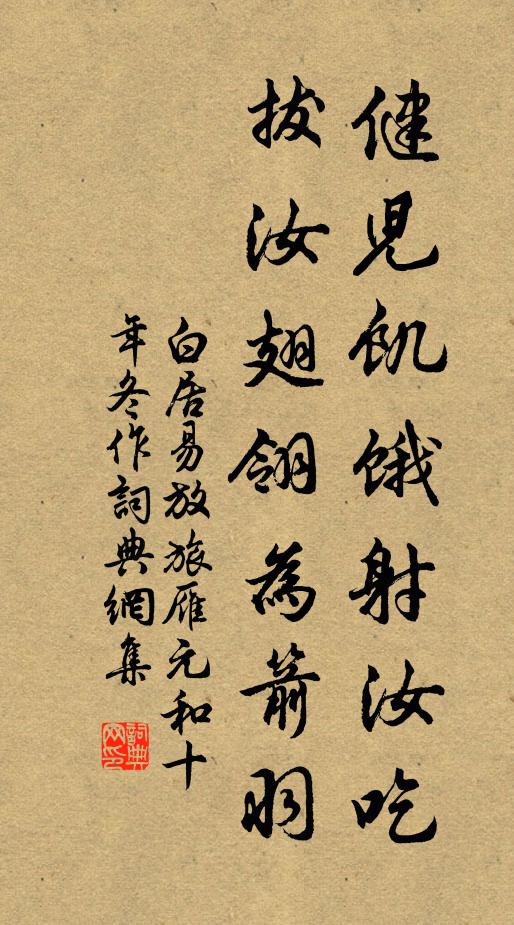 健兒飢餓射汝吃
拔汝翅翎為箭羽
白居易放旅雁元和十
年冬作詞典網集
詞典
网印